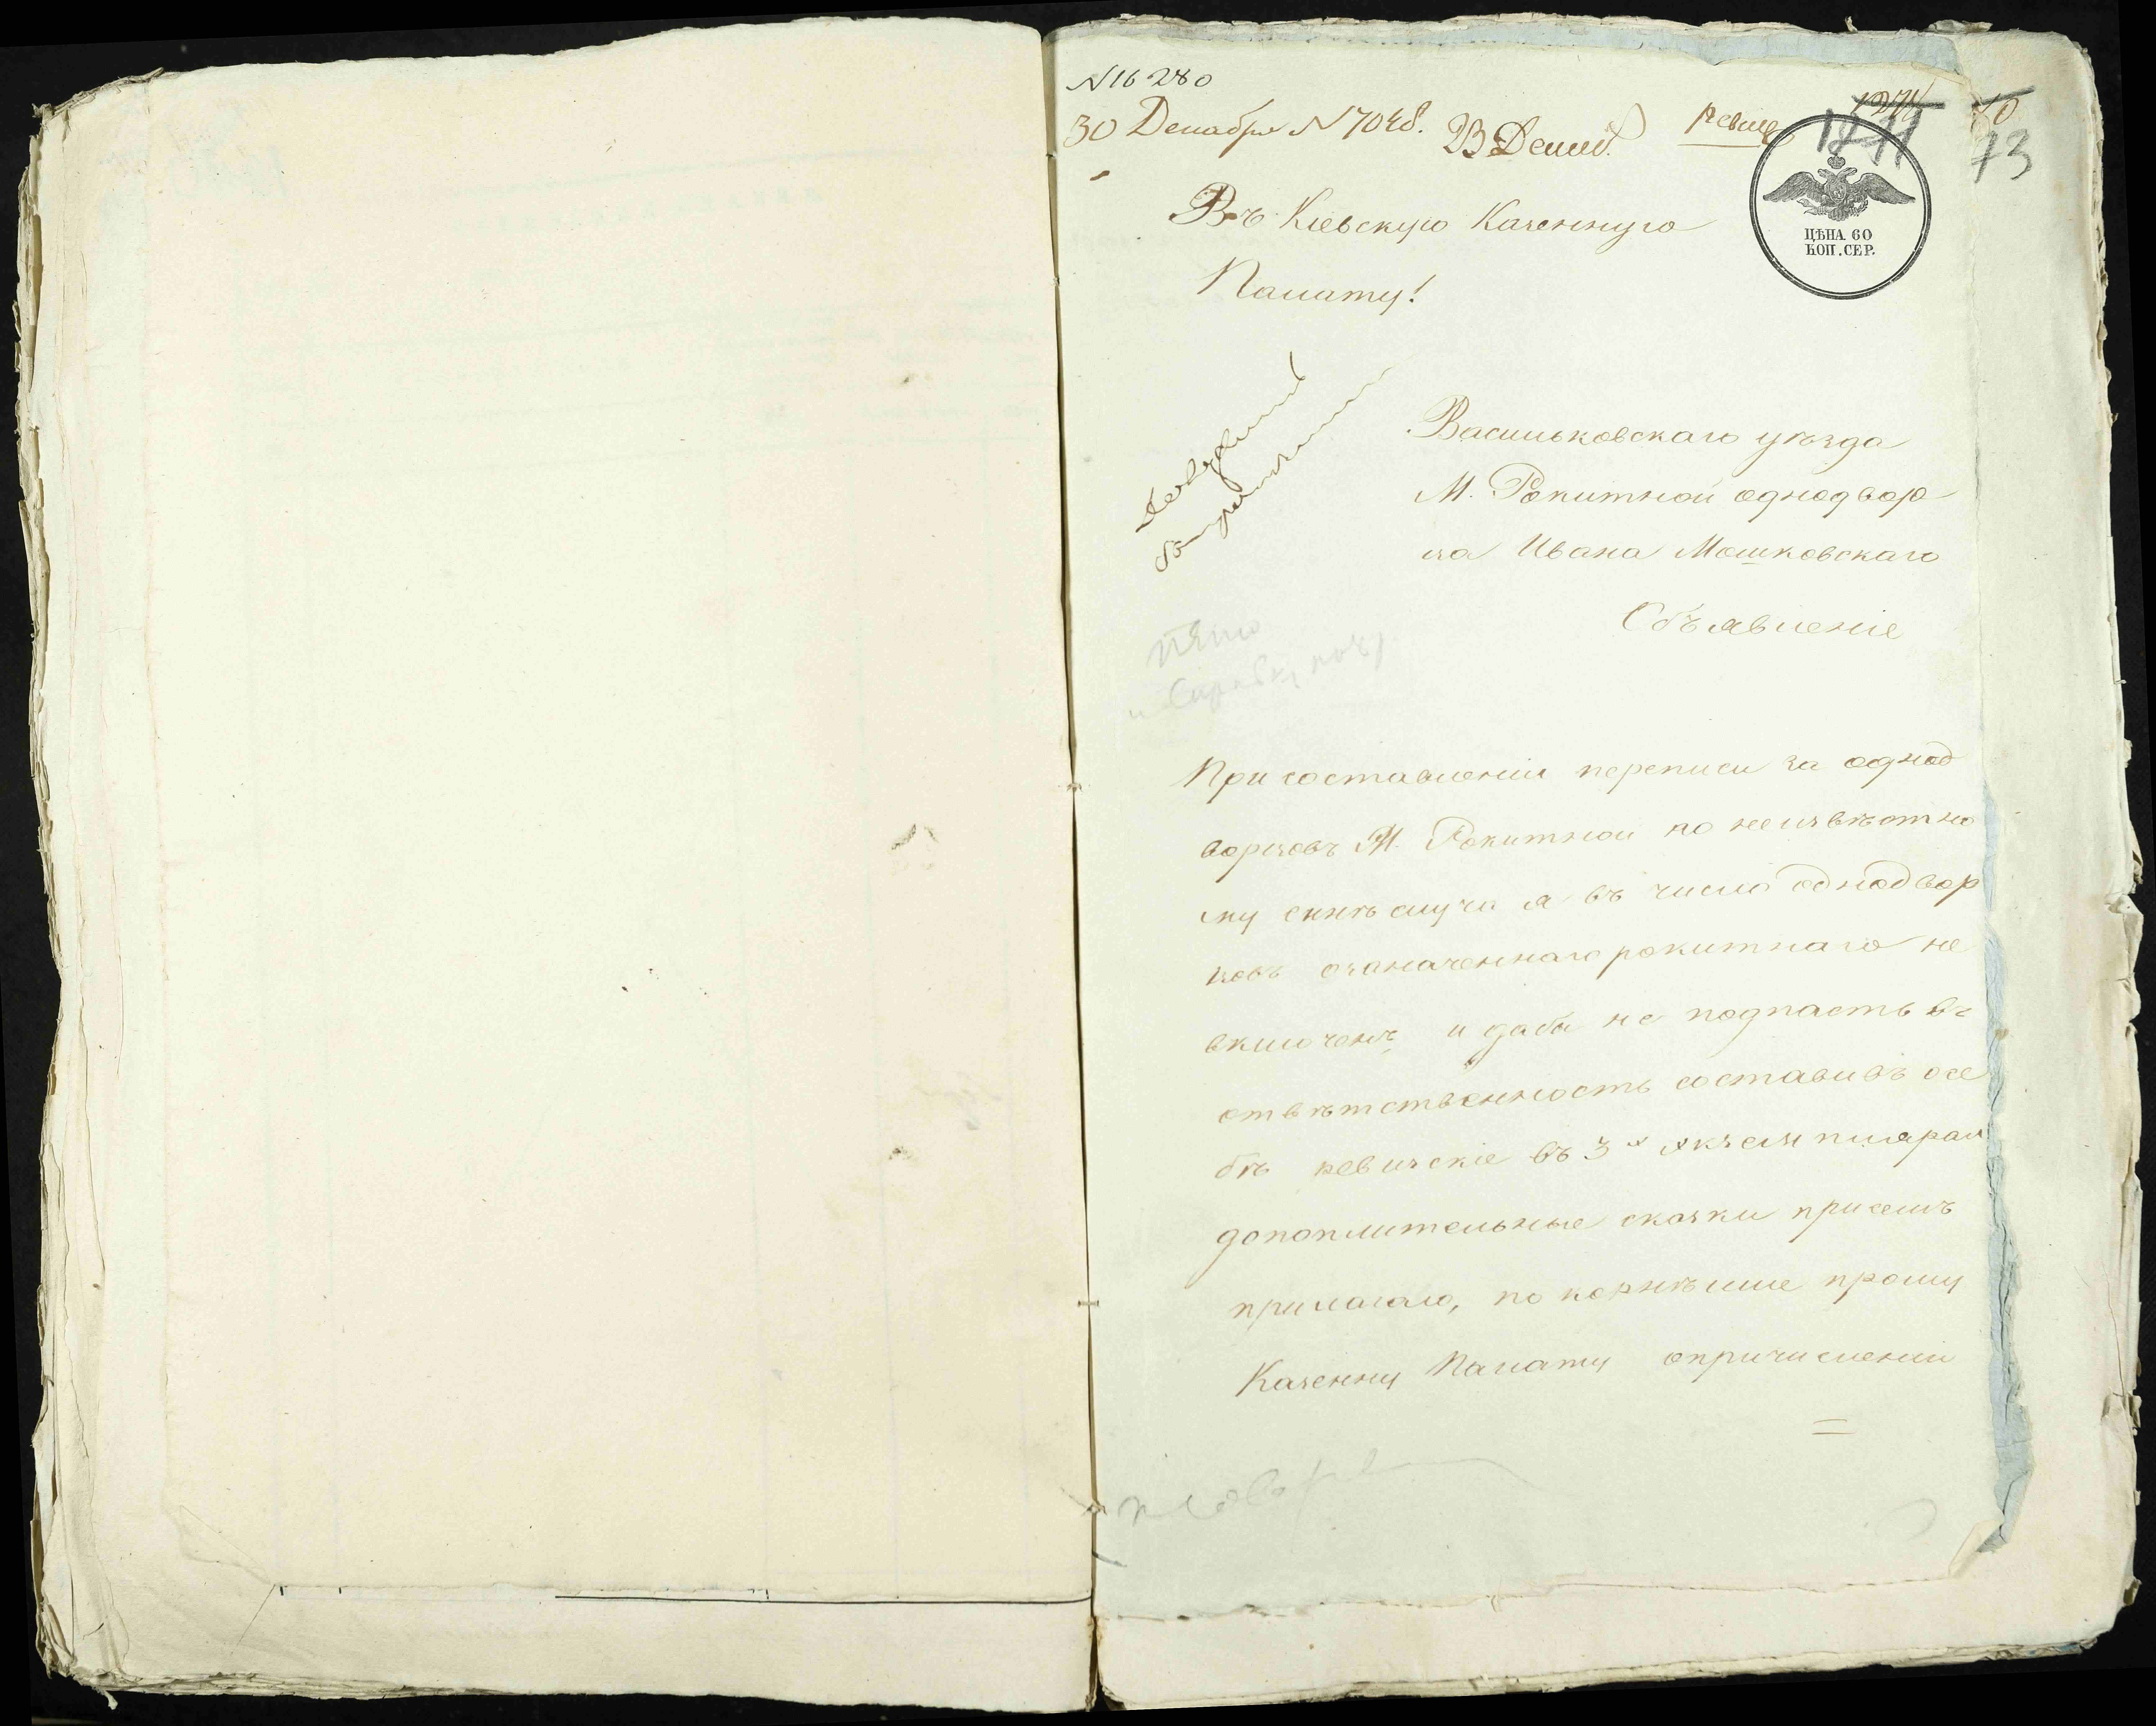 N 16280
30 Декабря N 7048.
73
ЦѢНА 60
КОП. СЕР.
Въ Кіевскую Казенную
Палату!
Васильковскаго уѣзда
М. Рокитной однодвор
ца Ивана Мошковскаго
Объявленіе
При составленіи переписи за однод
ворцовъ М. Рокитной по неизвѣстно
му случа я въ число однодвор
цовъ означеннаго рокитнаго не
включенъ и дабы не подпасть въ
отвѣтственность составивъ осе
бѣ ревизскіе въ 3х екземплярах
дополнительные сказки присемъ
прилагаю, покорнѣише прошу
Казенну Палату опричисленіи